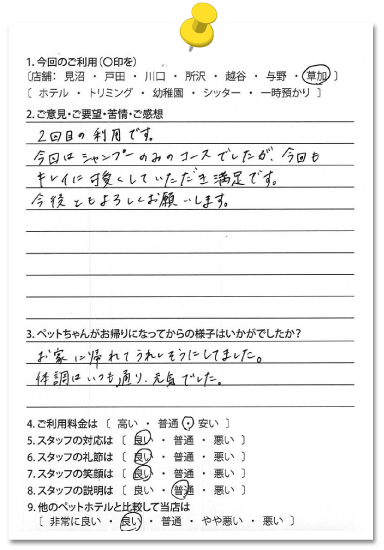 1.今回のご利用(〇印を)
〔店舗: 見沼 ・ 戸田 ・ 川口 ・ 所沢 ・ 越谷 ・ 与野 ・ 草加 〕
〔 ホテル ・ トリミング ・ 幼稚園 ・ シッター ・ 一時預かり 〕
2.ご意見・ご要望・苦情・ご感想
2回目の利用です。
今回はシャンプーのみのコースでしたが、今回も
キレイに可愛くしていただき満足です。
今後ともよろしくお願いします。
3.ペットちゃんがお帰りになってからの様子はいかがでしたか?
お家に帰れてうれしそうにしてました。
体調はいつも通り、元気でした。
4.ご利用料金は 〔 高い ・ 普通 ・ 安い 〕
5.スタッフの対応は 〔 良い ・ 普通 ・ 悪い 〕
6.スタッフの礼節は 〔 良い ・ 普通 ・ 悪い 〕
7.スタッフの笑顔は 〔 良い ・ 普通 ・ 悪い 〕
8.スタッフの説明は 〔 良い ・ 普通 ・ 悪い 〕
9.他のペットホテルと比較して当店は
〔 非常に良い ・ 良い ・ 普通 ・ やや悪い ・ 悪い 〕